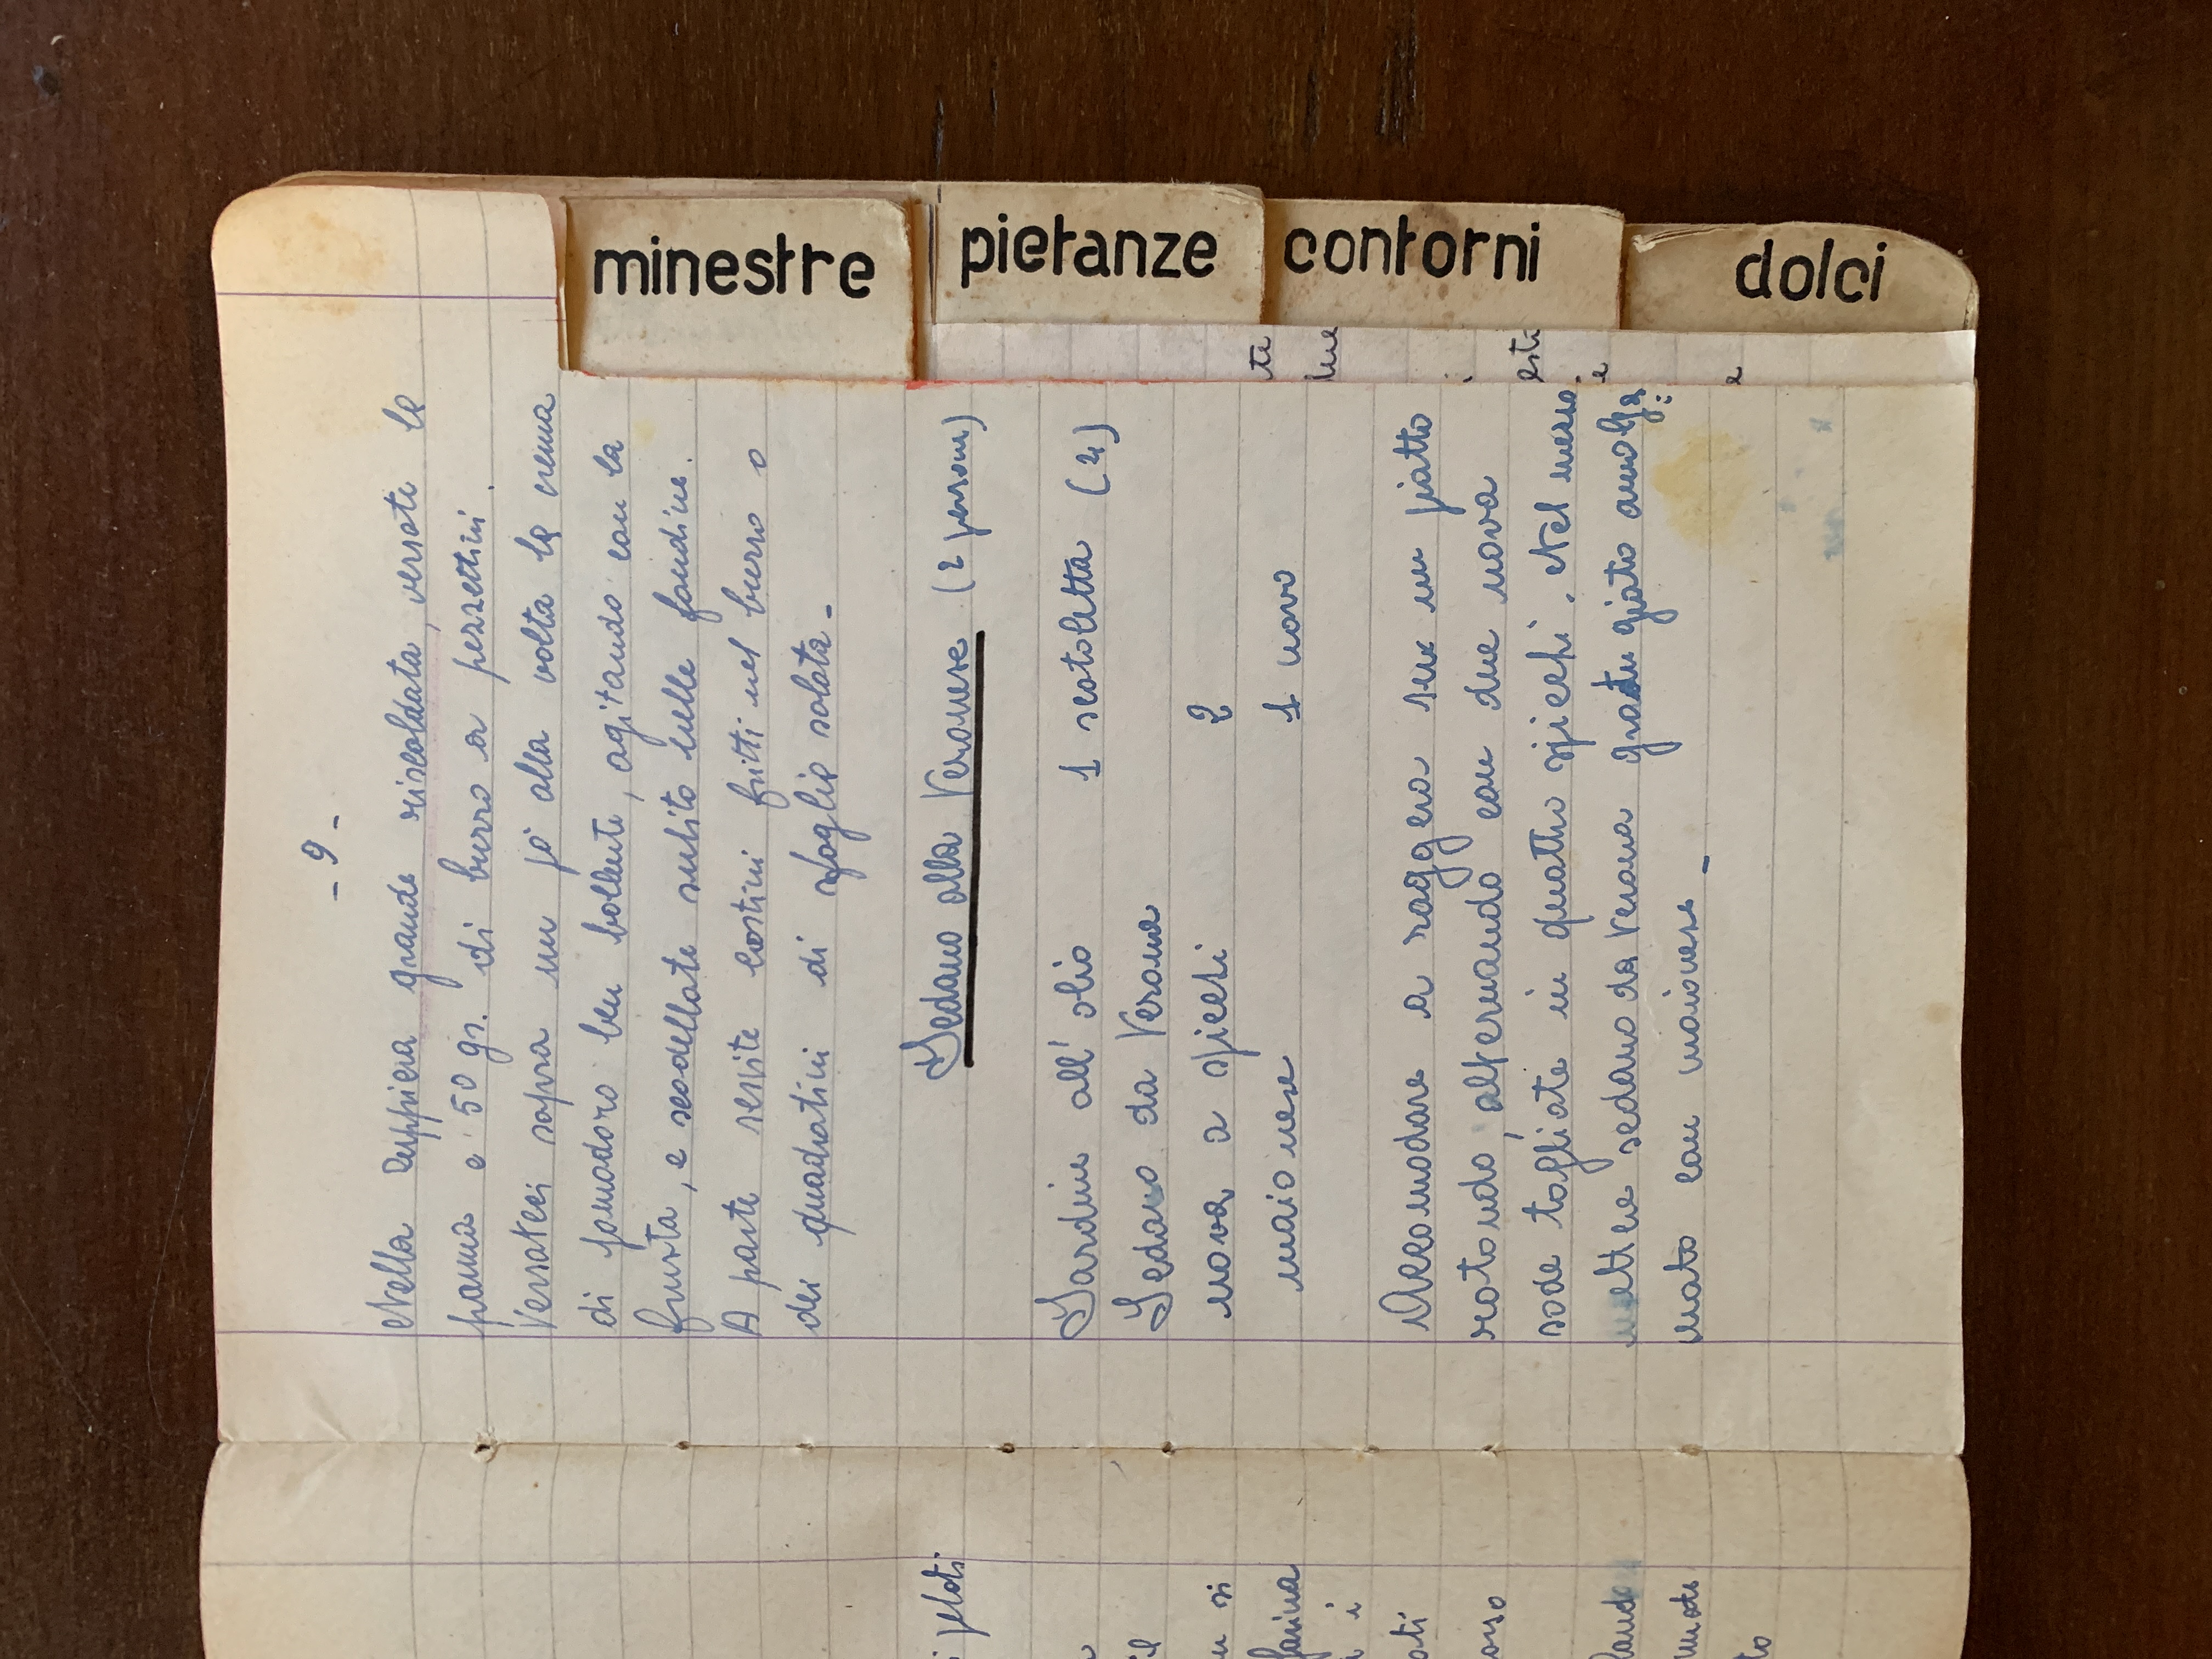 - 9 -
Nella zuppiera grande riscaldata, versate la
panna e 50 gr. di burro a pezzettini.
Versateci sopra un pò alla volta la crema
di pomodoro ben bollente, agitando con la
frusta, e scodellate subito nelle fondine.
A parte servite crostini fritti nel burro o
dei quadratini di sfoglia salata -
Sedano alla Veronese (2 persone)
Sardine all'olio 1 scatoletta (4)
Sedano da Verona
uova a spicchi 2
maionese 1 uovo
Accomodare a raggera su un piatto
rotondo, alternando con due uova
sode tagliate in quattro spicchi. Nel mezzo
mettere sedano da Verona grattugiato amalga=
mato con maionese -
i pelati
il
si
farina
i i
ati
osso
to
te
minestre
pietanze
contorni
dolci